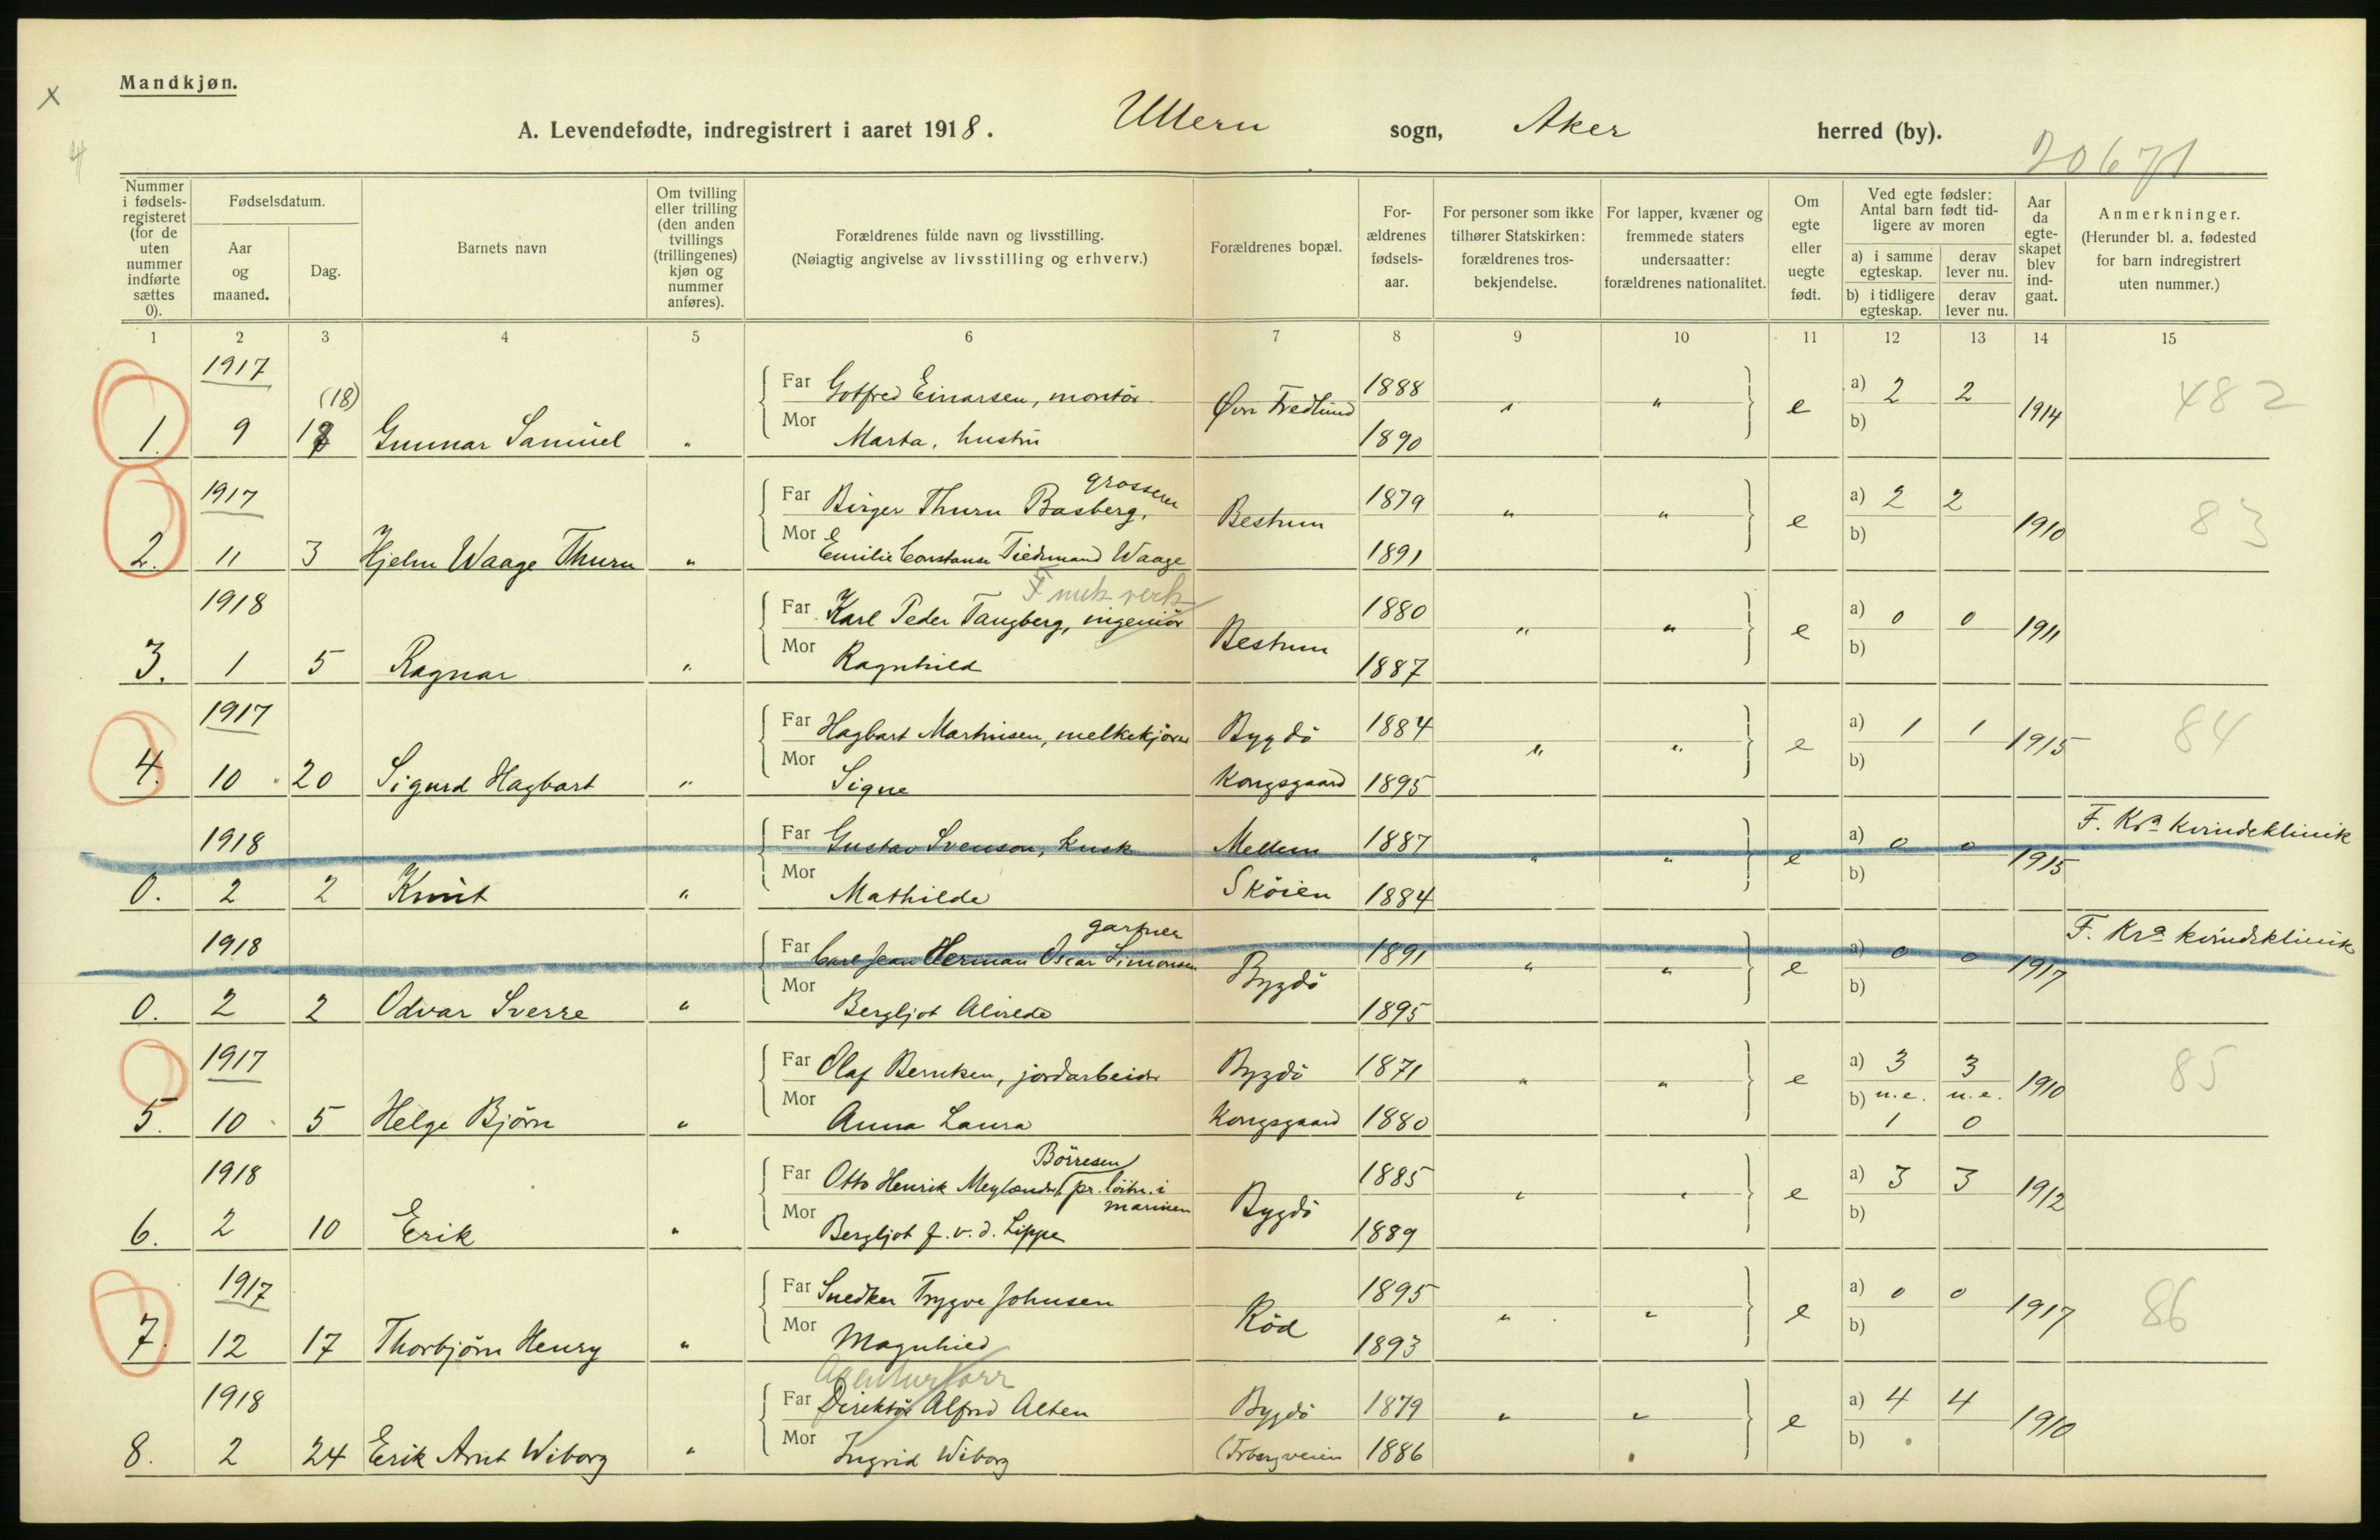 Mandkjøn.
A. Levendefødte, indregistrert i aaret 1918. Ullern sogn, Aker herred (by).
20671
Nummer i fødsels-registeret (for de uten nummer indførte sættes 0).
Fødselsdatum.
Aar og maaned.
Dag.
Barnets navn
Om tvilling eller trilling (den anden tvillings (trillingenes) kjøn og nummer anføres).
Forældrenes fulde navn og livsstilling.
(Nøiagtig angivelse av livsstilling og erhverv.)
Forældrenes bopæl.
For-ældrenes fødsels-aar.
For personer som ikke tilhører Statskirken: forældrenes tros-bekjendelse.
For lapper, kvæner og fremmede staters undersaatter: forældrenes nationalitet.
Om egte eller uegte født.
Ved egte fødsler: Antal barn født tid-ligere av moren
a) i samme egteskap. derav lever nu.
b) i tidligere egteskap. derav lever nu.
Aar da egte-skapet blev ind-gaat.
Anmerkninger.
(Herunder bl. a. fødested for barn indregistrert uten nummer.)
1 2 3 4 5 6 7 8 9 10 11 12 13 14 15
1917 (18) Far Gotfred Einarsen, montör Øvre Fredlund 1888 " " e a) 2 2 1914 482
1. 9 18 Gunnar Samuel " Mor Marta, hustru 1890 b)
1917 Far Birger Thurn Basberg, grosserer Bestum 1879 " " e a) 2 2 1910 83
2. 11 3 Hjelm Waage Thurn " Mor Emilie Constanse Tiedemand Waage 1891 b)
1918 Far Karl Peder Tangberg, ingeniör Bestum 1880 " " e a) 0 0 1911
3. 1 5 Ragnar " Mor Ragnhild 1887 b)
1917 Far Hagbart Martinsen, melkekjörer Bygdö 1884 " " e a) 1 1 1915 84
4. 10 20 Sigurd Hagbart " Mor Signe Kongsgaard 1895 b)
1918 Far Gustav Svenson, kusk Mellem 1887 " " e a) 0 0 1915 F. Kra kvindeklinik
0. 2 2 Knut " Mor Mathilde Sköien 1884 b)
1918 Far Carl Jean Herman Oscar Simonsen gartner Bygdö 1891 " " e a) 0 0 1917 F. Kra kvindeklinik
0. 2 2 Odvar Sverre " Mor Bergljot Alvilde 1895 b)
1917 Far Olaf Berntsen, jordarbeider Bygdö 1871 " " e a) 3 3 1910 85
5. 10 5 Helge Björn " Mor Anna Laura Kongsgaard 1880 b) u.e. 1 u.e. 0
1918 Far Otto Henrik Meylænder Börresen pr. löitn. i marinen Bygdö 1885 " " e a) 3 3 1912
6. 2 10 Erik " Mor Bergljot f. v. d. Lippe 1889 b)
1917 Far Snedker Trygve Johnsen Röd 1895 " " e a) 0 0 1917 86
7. 12 17 Thorbjörn Henry " Mor Magnhild 1893 b)
Agenturforr
1918 Far Direktör Alfred Alten Bygdö 1879 " " e a) 4 4 1910
8. 2 24 Erik Arnt Wiborg " Mor Ingrid Wiborg 1886 b)